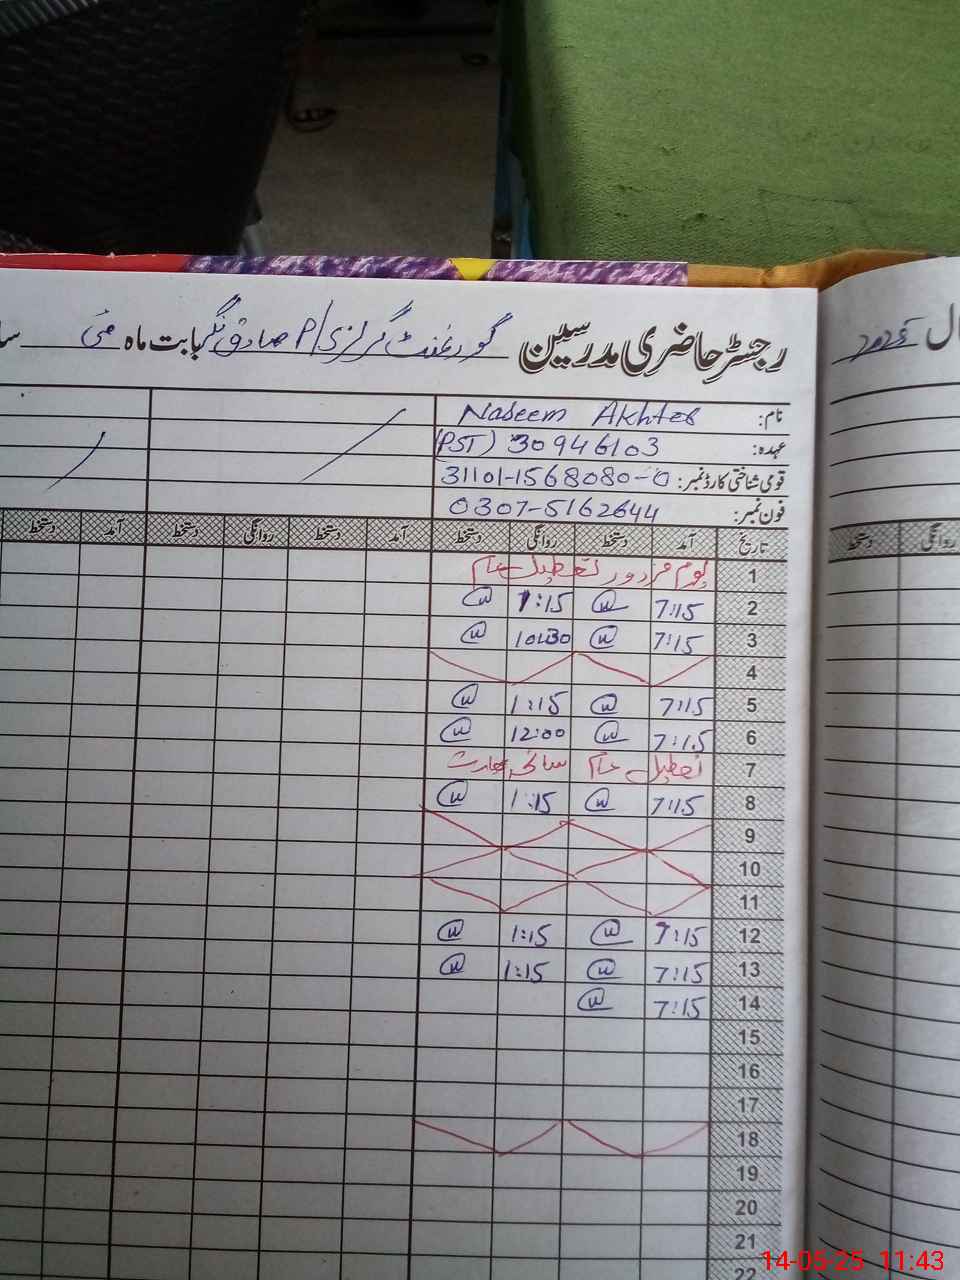 رجسٹر حاضری مدرسین گورنمنٹ گرلز P/ صادق نگر بابت ماہ مئی سا
ال
نام: Naseem Akhter
عہدہ: (PST) 30946103
قومی شناختی کارڈ نمبر: 31101-1568080-0
فون نمبر: 0307-5162644
تاریخ آمد دستخط روانگی دستخط آمد دستخط روانگی دستخط آمد دستخط
روانگی دستخط
1 یوم مزدور تعطیل عام
2 7:15 1:15
3 7:15 10:30
4
5 7:15 1:15
6 7:15 12:00
7 تعطیل عام
8 7:15 1:15
9
10
11
12 7:15 1:15
13 7:15 1:15
14 7:15
15
16
17
18
19
20
21
22
14-05-25 11:43